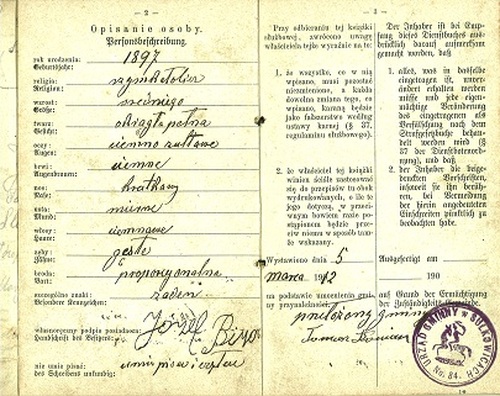 — 2 —
Opisanie osoby.
Personsbeschreibung.
rok urodzenia: 1897
Geburtsjahr:
religia:
Religion:
wzrost: średniego
Größe:
twarz: okrągła pełna
Gesicht:
oczy: ciemno żółtawe
Augen:
brwi: ciemne
Augenbrauen:
nos:
Nase:
usta: mierne
Mund:
włosy: ciemnawe
Haare:
zęby: gęste
Zähne:
broda: proporcyonalna
Bart:
szczególne znaki: żaden
Besondere Kennzeichen:
własnoręczny podpis posiadacza: Józef
Handschrift des Besitzers:
nie umie pisać: umie pisać i czytać
des Schreibens unkundig:
— 3 —
Przy odbieraniu tej książki
służbowej, zwrócono uwagę
właściciela tejże wyraźnie na to:
1. że wszystko, co w nią
wpisano, musi pozostać
niezmienione, a każda
dowolna zmiana tego, co
wpisano, karaną będzie
jako fałszerstwo według
ustawy karnej (§ 37.
regulaminu służbowego).
2. że właściciel tej książki
winien ściśle zastosować
się do przepisów tu obok
wydrukowanych, o ile to
jego dotyczą, w przeci-
wnym bowiem razie po-
stąpionem będzie prze-
ciw niemu w sposób tam-
że wskazany.
Wystawiono dnia 5
marca 1912
na podstawie umocowania gmi-
ny przynależności
przełożony gminy
Tomasz
Der Inhaber ist bei Emp-
fang dieses Dienstbuches aus-
drücklich darauf aufmerksam
gemacht worden, daß
1. alles, was in dasselbe
eingetragen ist, unver-
ändert erhalten werden
müsse und jede eigen-
mächtige Veränderung
des eingetragenen als
Verfälschung nach dem
Strafgesetzbuche behan-
delt werden wird (§ 37
der Dienstbotenord-
nung), und daß
2. der Inhaber die beige-
druckten Vorschriften,
insoweit sie ihn berüh-
ren, bei Vermeidung
der hierin angedeuteten
Einschreiten pünktlich zu
beobachten habe.
Ausgefertigt am
190
auf Grund der Ermächtigung
der Zuständigkeits-Gemeinde.
URZĄD GMINNY W SUŁKOWICACH
No. 84.